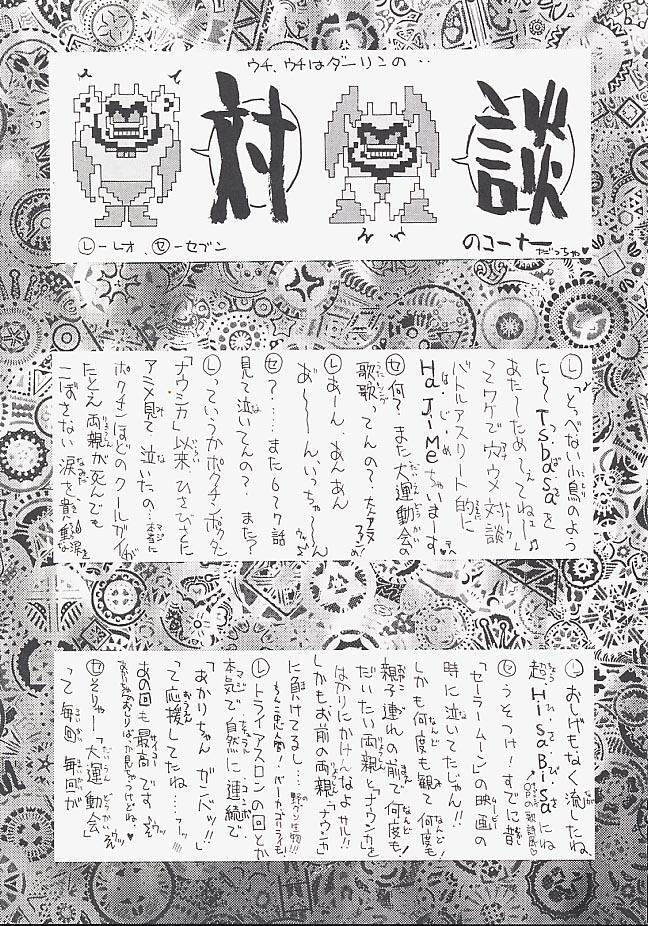 ウチ、ウチはダーリンの‥
対談
のコーナー
だっちゃ♥
Ⓛーレオ、セーセブン
Ⓛ「とべない小鳥のよう
に〜Tsubasaを
あた〜ためてえてねェ〜」♫
ってワケでウワメ対談
バトルアスリート的に
HaJiMeちゃいま〜す
セ何?また大運動会の
歌歌ってんの?
Ⓛあーん、あんあん
あ〜〜んいっちゃ〜〜ん
セ?……また6て7話
見て泣いてんの?また?
Ⓛっていうかポクチンポクタン
「ナウシカ」以来ひさびさに
アニメ見て泣いたの。本当に
ポクチンほどのクールガイが
たとえ両親が死んでも
こぼさない涙を
Ⓛおしげもなく流したね、
超HiSaBiSaにね
セうそつけ!すでに昔
「セーラームーン」の映画の
時に泣いてたじゃん!!
しかも何度も観て何度も
親子連れの前で何度も!
だいたい両親と「ナウシカ」を
はかりにかけんなよサル!!
しかもお前の両親「ナウシカ」
に負けてるし……
Ⓛトライアスロンの回とか
本気で自然に連続で
「あかりちゃんガンバッ!!」
って応援してたね……
あの回も最高です
セそりゃー「大運動会」
って毎回毎回が